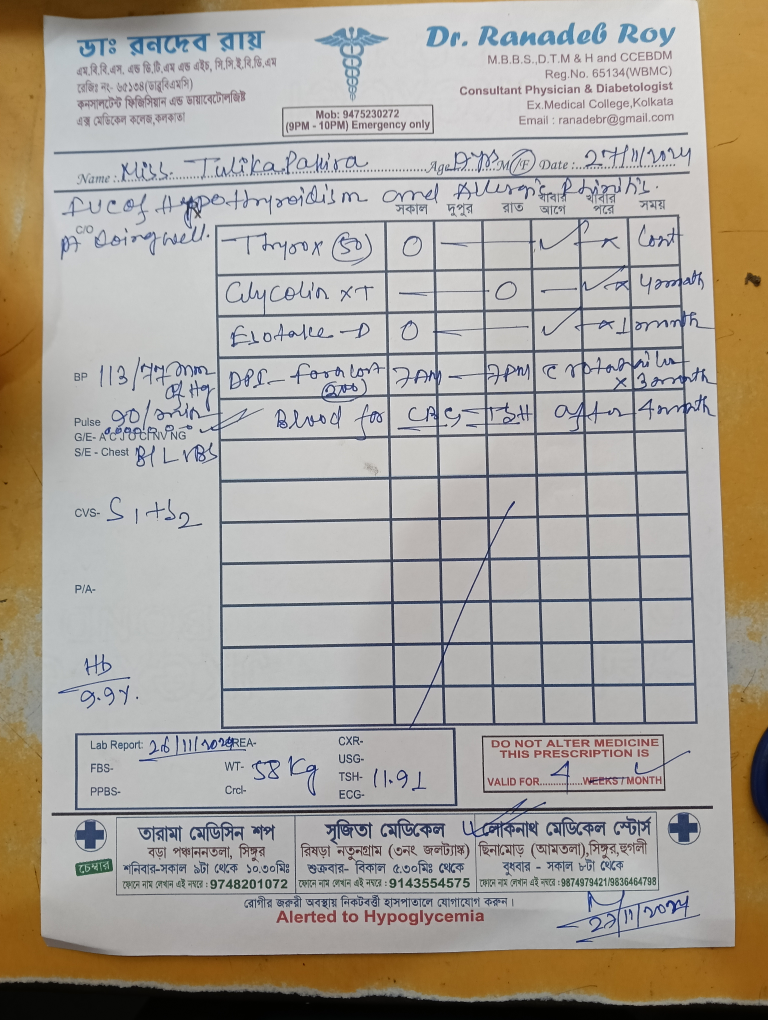 ডাঃ রনদেব রায়
এম.বি.বি.এস, এন্ড ডি.টি.এম এন্ড এইচ, সি.সি.ই.বি.ডি.এম
রেজিঃ নং- ৬৫১৩৪(ডাব্লুবিএমসি)
কনসালটেন্ট ফিজিসিয়ান এন্ড ডায়াবেটোলজিষ্ট
এক্স মেডিকেল কলেজ,কলকাতা
Mob: 9475230272
(9PM - 10PM) Emergency only
Dr. Ranadeb Roy
M.B.B.S.,D.T.M & H and CCEBDM
Reg.No. 65134(WBMC)
Consultant Physician & Diabetologist
Ex.Medical College,Kolkata
Email : ranadebr@gmail.com
Name : Miss. Tulika Pakira Age M/F Date : 27/11/2024
FUC of Hypothyroidism and Allergic Rhinitis.
সকাল দুপুর রাত খাবার আগে খাবার পরে সময়
C/O Pt doing well.
Thyrox (50) O — ✓ x Cont
Glycolin x T — O — ✓ x 4 month
O — ✓ x 1 month
BP 113/77 mm of Hg
DPI - Foracort (200) 7AM — 7PM c rotahaler x 3 month
Pulse 90/min
Blood for CBC, TSH after 4 month
G/E- A C J O CL NV NG
S/E - Chest B/L VBS
CVS- S1+S2
P/A-
Hb
9.9%.
Lab Report: 26/11/2024 UREA- CXR-
FBS- WT- 58 Kg USG-
PPBS- Crcl- TSH- 11.91
ECG-
DO NOT ALTER MEDICINE
THIS PRESCRIPTION IS
VALID FOR 4 WEEKS / MONTH
চেম্বার
তারামা মেডিসিন শপ
বড়া পঞ্চাননতলা, সিঙ্গুর
শনিবার-সকাল ৯টা থেকে ১০.৩০মিঃ
ফোনে নাম লেখান এই নম্বরে : 9748201072
সুজিতা মেডিকেল
রিষড়া নতুনগ্রাম (৩নং জলট্যাঙ্ক)
শুক্রবার- বিকাল ৫.৩০মিঃ থেকে
ফোনে নাম লেখান এই নম্বরে : 9143554575
লোকনাথ মেডিকেল স্টোর্স
ছিনামোড় (আমতলা),সিঙ্গুর,হুগলী
বুধবার - সকাল ৮টা থেকে
ফোনে নাম লেখান এই নম্বরে :9874979421/9836464798
রোগীর জরুরী অবস্থায় নিকটবর্তী হাসপাতালে যোগাযোগ করুন।
Alerted to Hypoglycemia
27/11/2024